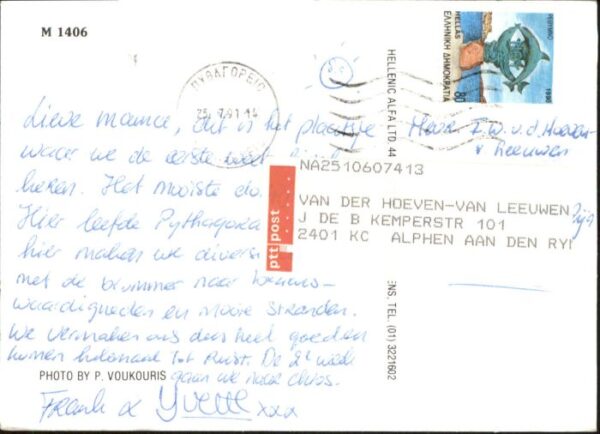 M 1406
ΠΥΘΑΓΟΡΕΙΟ
25. 7.91.14
ΡΕΘΥΜΝΟ
HELLAS
ΕΛΛΗΝΙΚΗ ΔΗΜΟΚΡΑΤΙΑ
80
HELLENIC ALFA LTD. 44
ENS. TEL. (01) 3221602
Lieve mamma, dit is het plaatsje
waar we de eerste week
Het mooiste
Hier leefde Pythagoras
hier maken we
met de brommer naar
waardigheden en mooie stranden.
We vermaken ons
komen helemaal tot Rust. De 2e week
gaan we naar
Frank & Yvette xxx
PHOTO BY P. VOUKOURIS
Heer F.W. v.d. Hoeven
v Leeuwen
ptt post
NA2510607413
VAN DER HOEVEN-VAN LEEUWEN
J DE B KEMPERSTR 101
2401 KC ALPHEN AAN DEN RYI